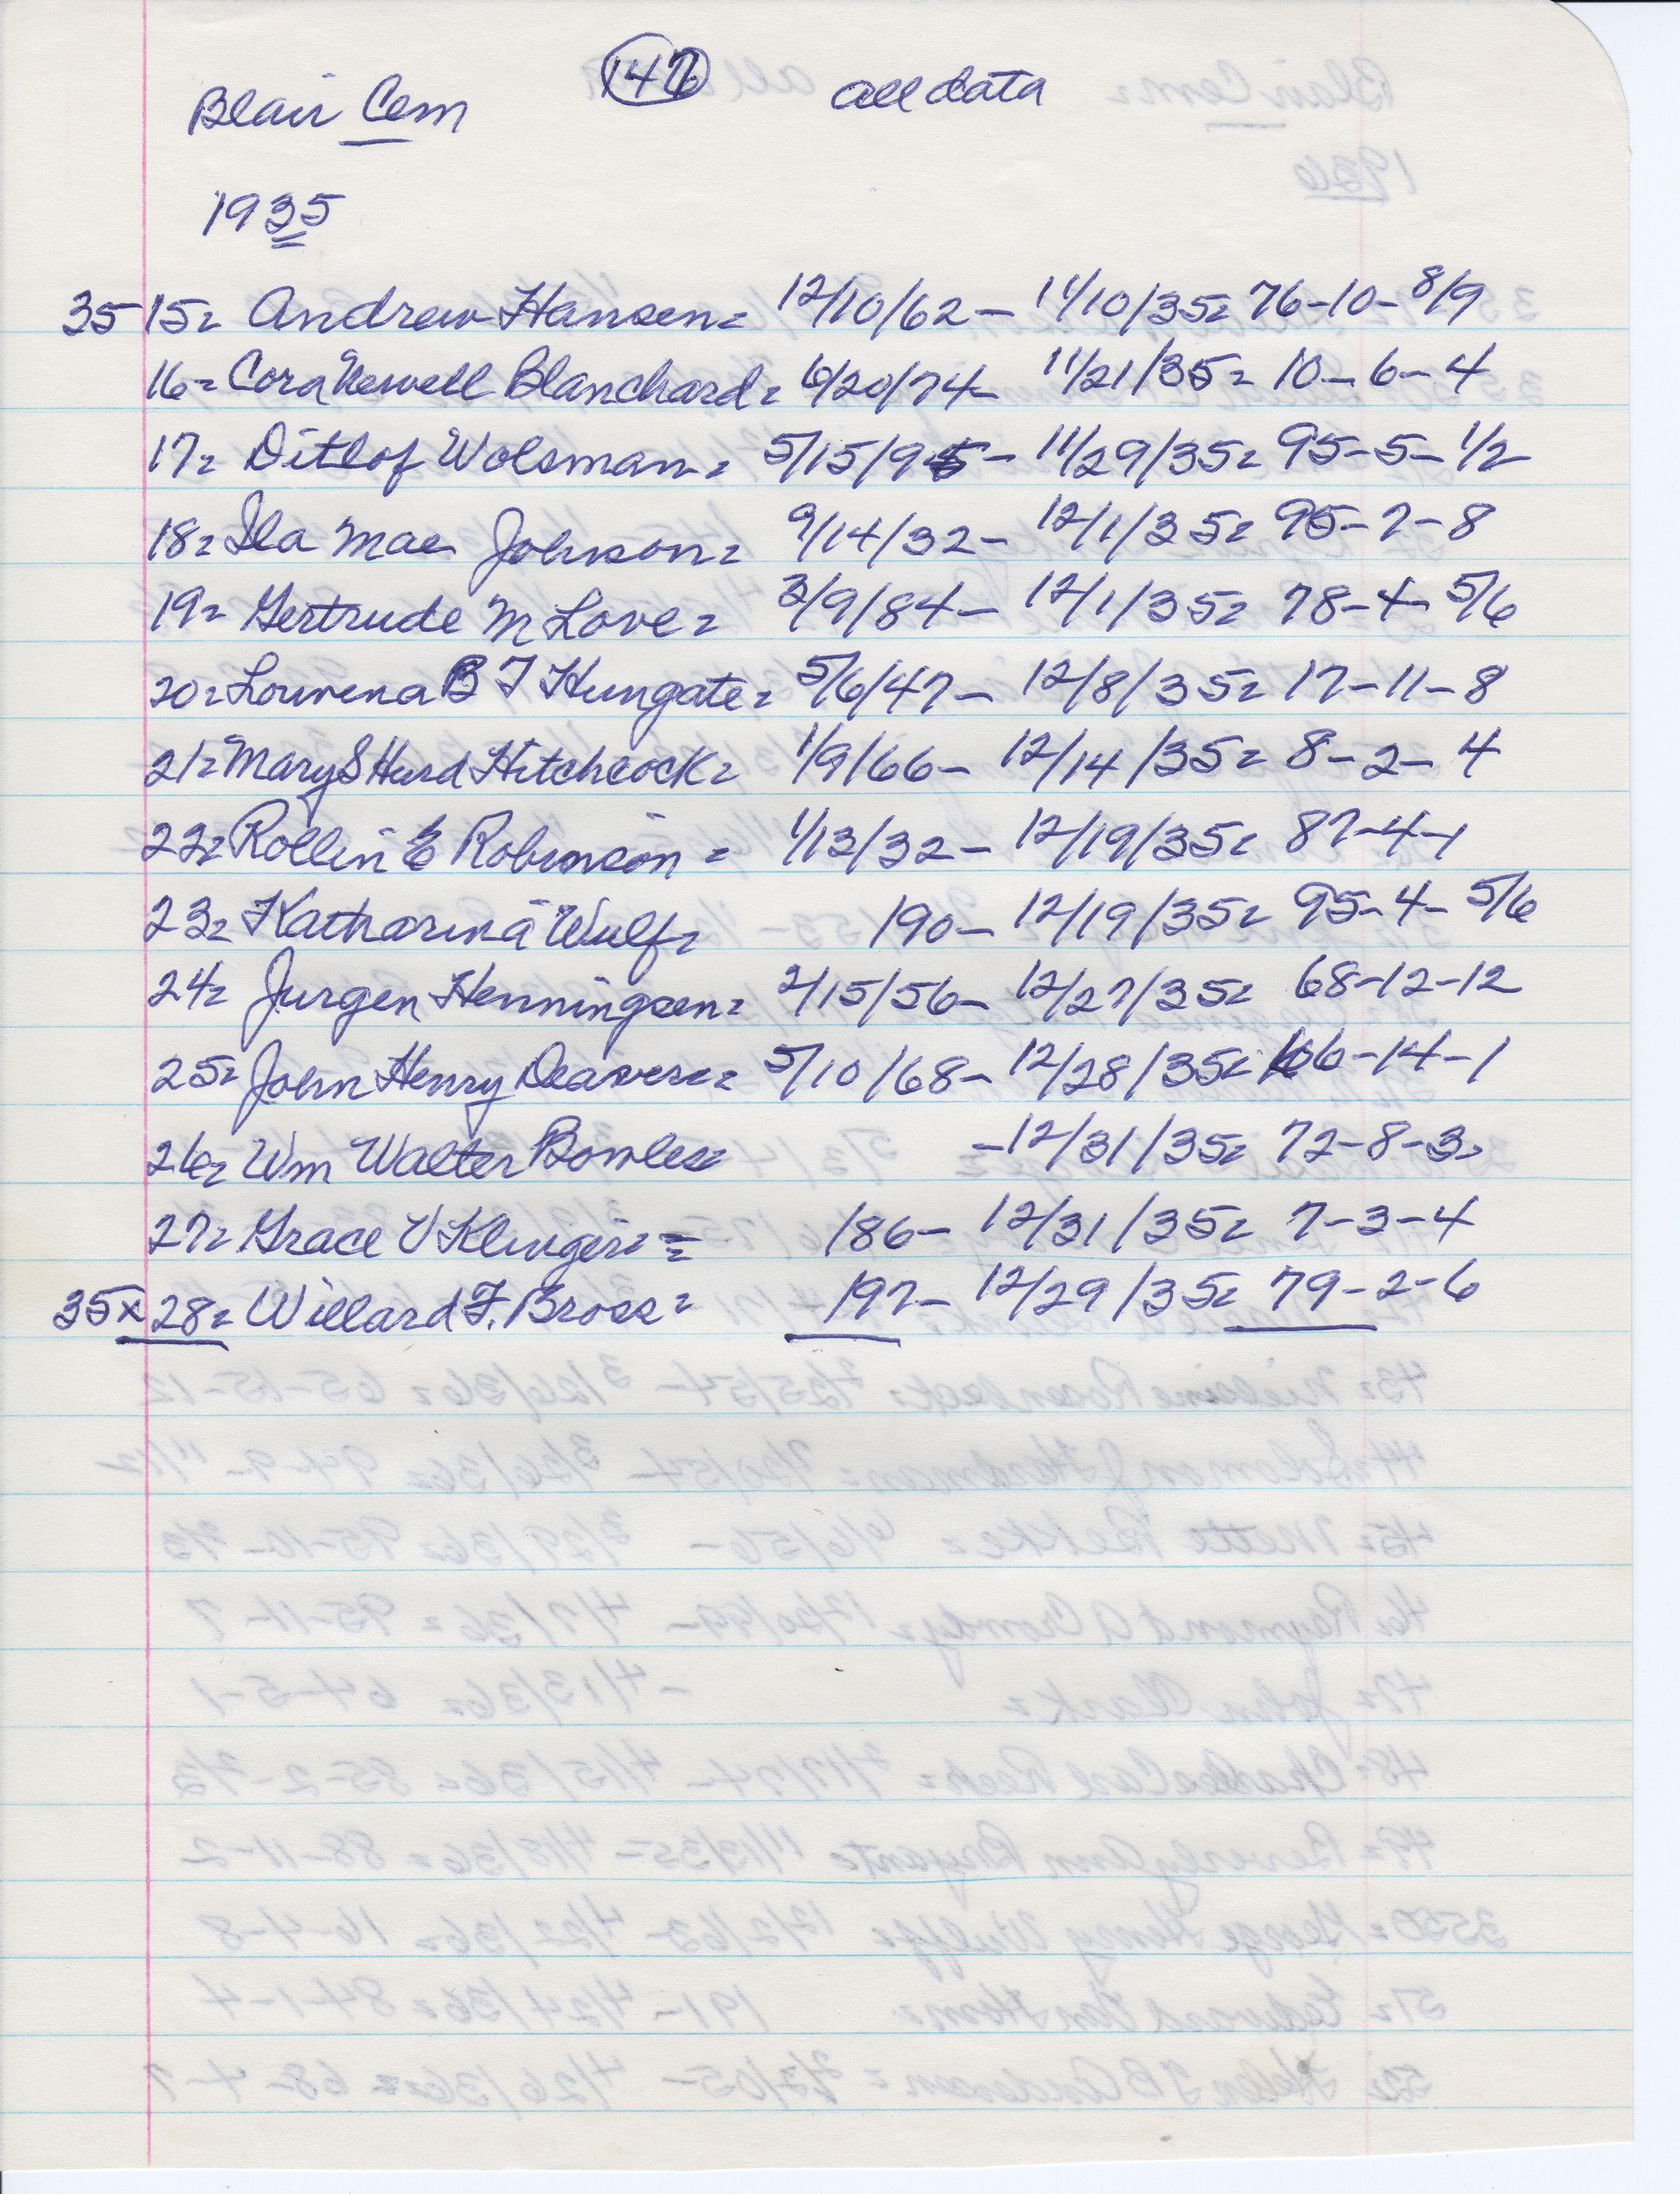 Blair Cem 147 all data
1935
35 15= Andrew Hansen= 12/10/62- 11/10/35= 76-10-8/9
16= Cora Newell Blanchard= 6/20/74- 11/21/35= 10-6-4
17= Ditlof Wolsman= 5/15/95- 11/29/35= 95-5-1/2
18= Ila Mae Johnson= 9/14/32- 12/1/35= 95-7-8
19= Gertrude M Love= 3/9/84- 12/1/35= 78-4-5/6
20= Louvena B F Hungate= 5/6/47- 12/8/35= 17-11-8
21= Mary S Hurd Hitchcock= 1/9/66- 12/14/35= 8-2-4
22= Rollin E Robinson= 1/13/32- 12/19/35= 87-4-1
23= Katharina Wulf= 190- 12/19/35= 95-4-5/6
24= Jurgen Henningsen= 2/15/56- 12/27/35= 68-12-12
25= John Henry Deaver= 5/10/68- 12/28/35= 66-14-1
26= Wm Walter Bowles= -12/31/35= 72-8-3
27= Grace V Klinger= = 186- 12/31/35= 7-3-4
35x 28= Willard F. Bross= 197- 12/29/35= 79-2-6